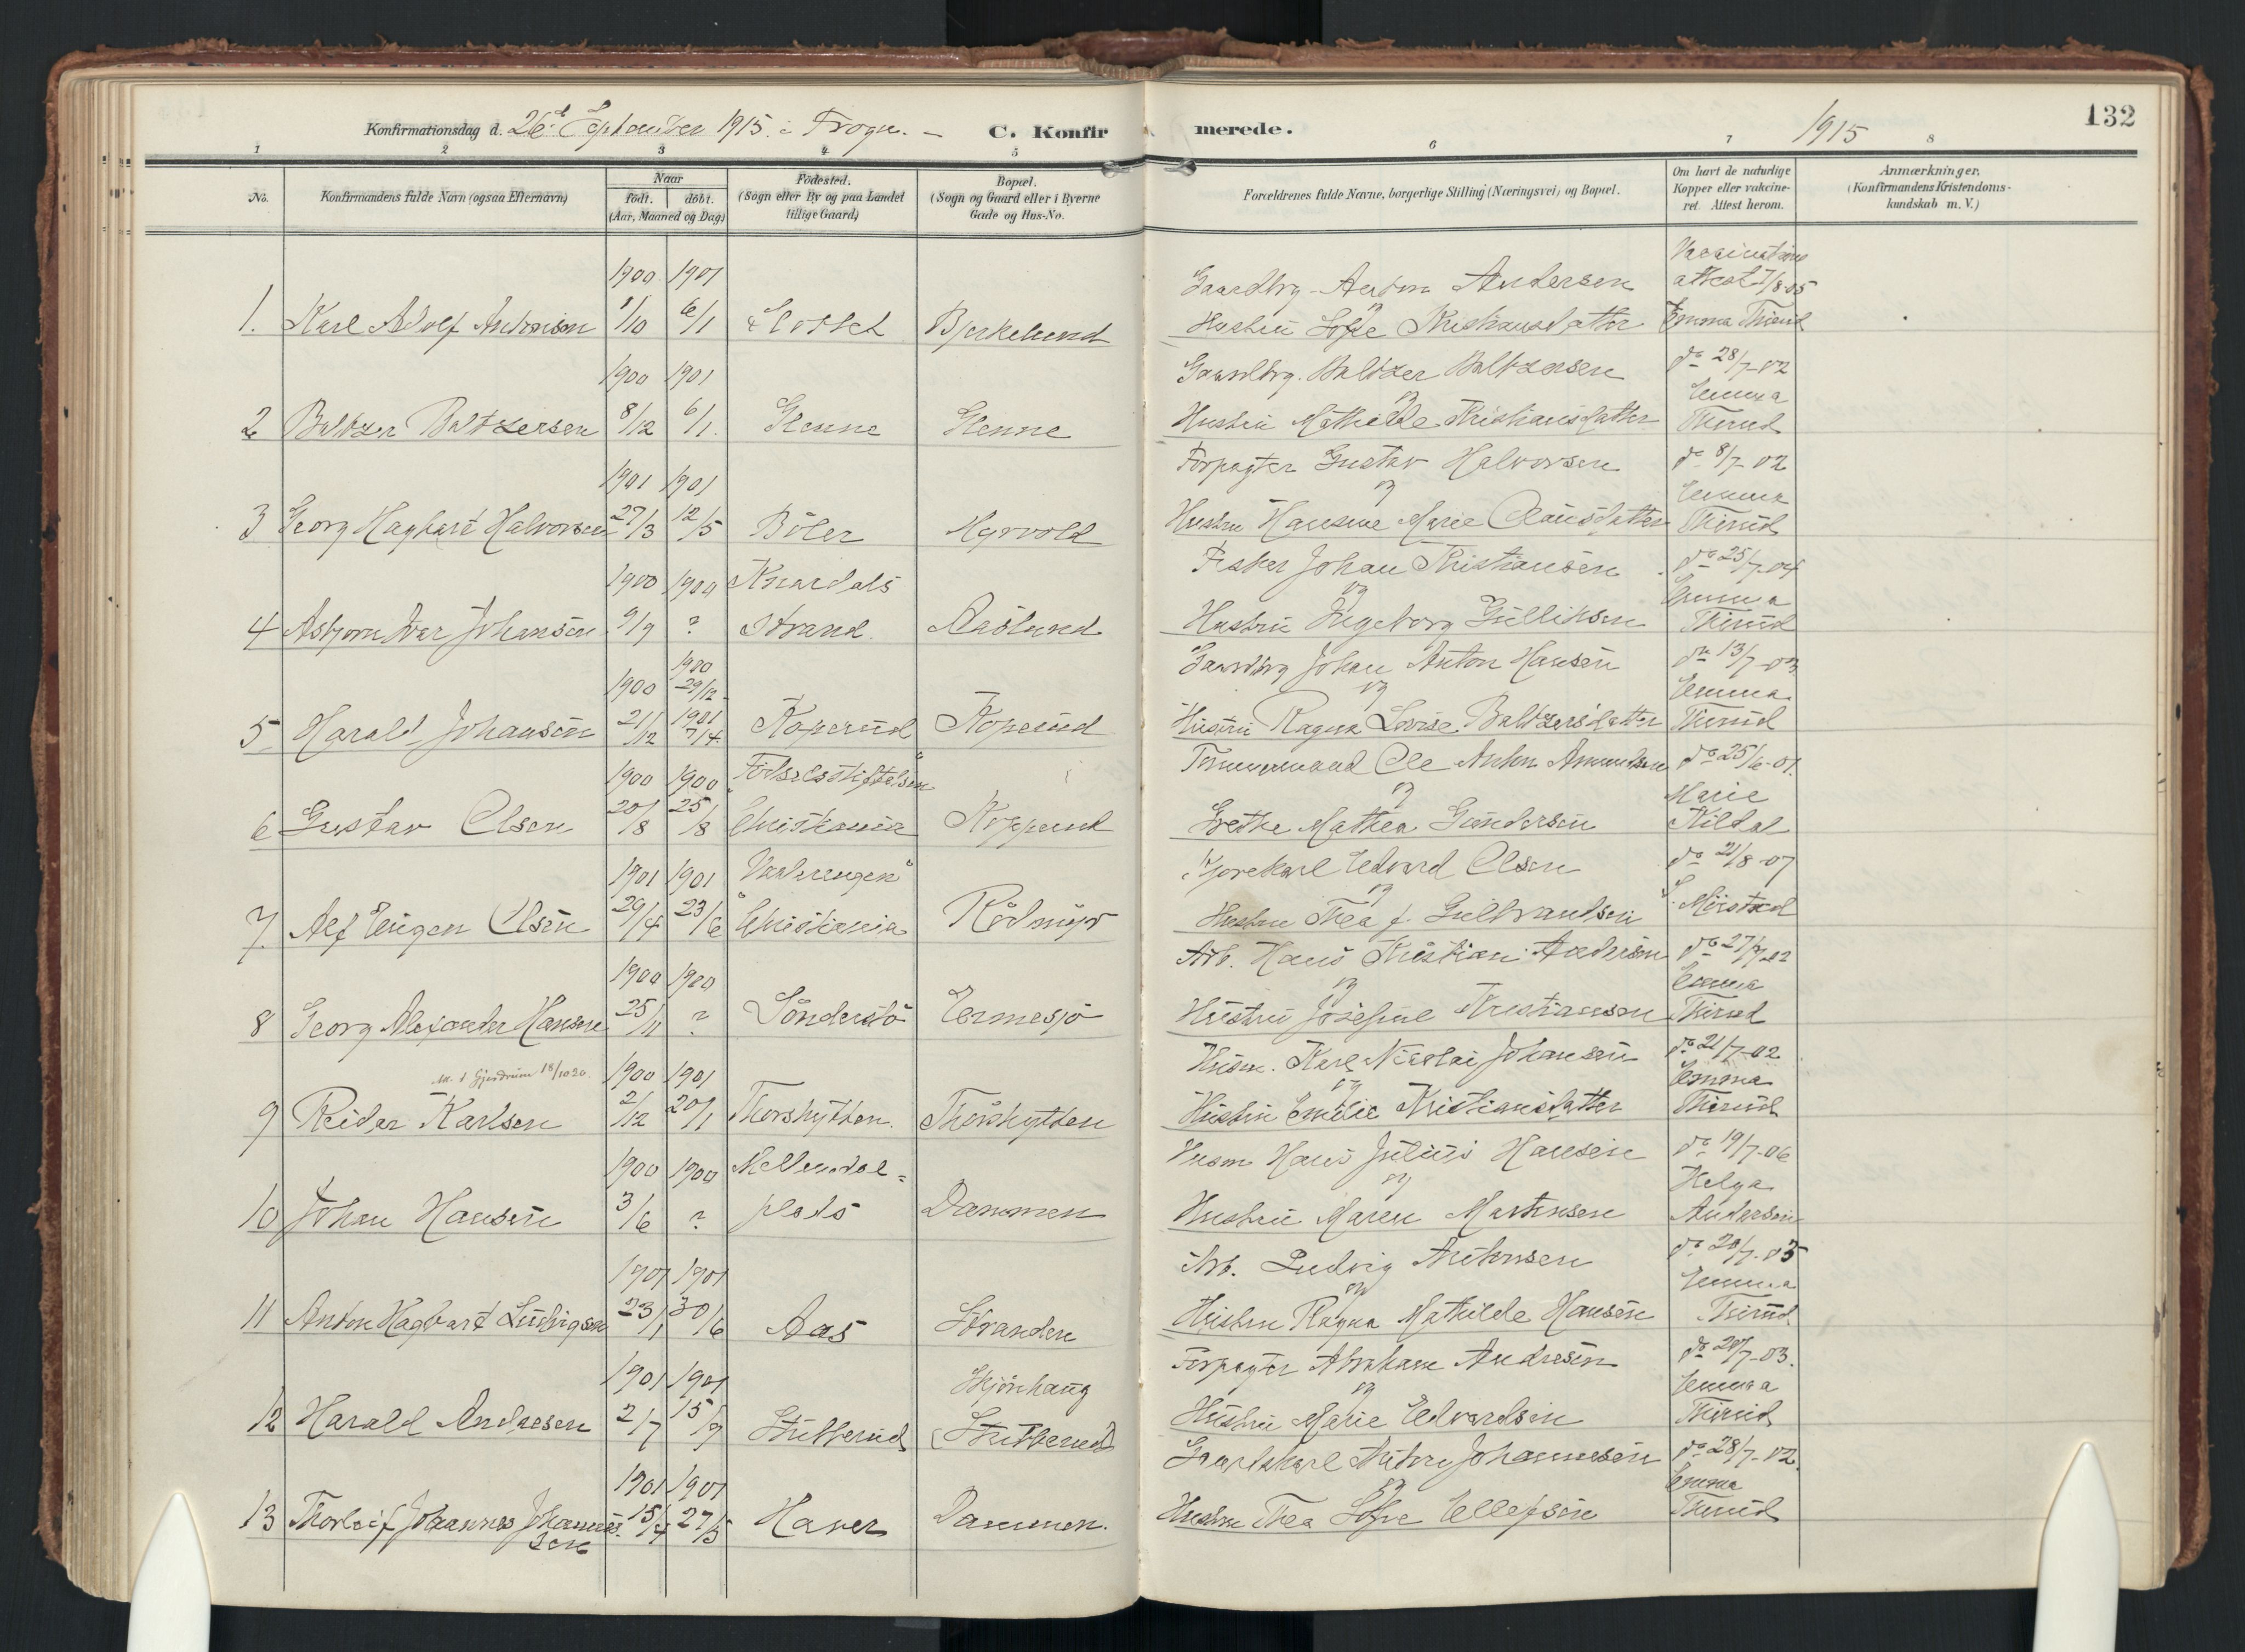 Konfirmationsdag d. 26de September 1915 i Frogn. – C. Konfirmerede. 1915 132
1 2 3 4 5 6 7 8
No. Konfirmandens fulde Navn (ogsaa Efternavn) Naar født. døbt. (Aar, Maaned og Dag) Fødested. (Sogn eller By og paa Landet tillige Gaard) Bopæl. (Sogn og Gaard eller i Byerne Gade og Hus-No. Forældrenes fulde Navne, borgerlige Stilling (Næringsvei) og Bopæl. Om havt de naturlige Kopper eller vakcineret. Attest herom. Anmærkninger, (Konfirmandens Kristendomskundskab m. V.)
1900 1901 Gaardbrg. Anton Andersen Vaccinations
og attest 7/8-05
1. Karl Adolf Antonsen 1/10 6/1 Bjerkelund Hustru Sofie Kristiansdatter Emma Thirud
1900 1901 Gaardbrg. Baltzer Baltzersen do 28/7-02
og Emma
2 Baltzer Baltzersen 8/12 6/1. Glenne Glenne Hustru Mathilde Kristiansdatter Thirud
1901 1901 Forpagter Gustav Halvorsen do 8/7-02
og Emma
3 Georg Hagbart Halvorsen 27/3 12/5 Böler Myrvold Hustru Hansine Marie Clausdatter Thirud
1900 1900 Knardals Fisker Johan Kristiansen do 25/7-04
og Emma
4 Asbjørn Ivar Johansen 9/9 ? strand. Aaslund Hustru Ingeborg Gulliksen Thirud
1900 1900 29/12 Gaardbrg Johan Anton Hansen do 13/7-03
og Emma
5 Harald Johansen 21/12 1901 7/4 Koperud Koperud Hustru Ragna Lovise Baltzersdatter Thirud
1900 1900 "Födselsstiftelsen" Tømmermand Ole Anton Amundsen do 25/6-01.
og Marie
6 Gustav Olsen 20/8 25/8 Christiania Kopperud Grethe Mathea Gundersen Kildal
1901 1901 "Vaalerengen" Kjørekarl Edvard Olsen do 21/8-07
og
7. Alf Eugen Olsen 29/4 23/6 Christiania Rödmyr Hustru Thea f. Gulbrandsen
1900 1900 Arb. Hans Kristian Andersen do 27/7-02
og Emma
8 Georg Alexander Hansen 25/11 ? Sönderstö Ermesjö Hustru Josefine Kristiansen Thirud
Att. t Gjerdrum 18/10 20. 1900 1901 Husm. Karl Nicolai Johansen do 21/7-02
og Emma
9 Reidar Karlsen 2/12 20/1 Thorshytten. Thorshytten Hustru Emilie Kristiansdatter Thirud
1900 1900 Mellumdal= Husm Hans Julius Hansen do 19/7-06
og Helga
10 Johan Hansen 3/6 ? plads Dammen Hustru Maren Martinsen Andersen
1901 1901 Arb. Ludvig Antonsen do 20/7-03
og Emma
11 Anton Hagbart Ludvigsen 23/1 30/6 Aas Stranden Hustru Ragna Mathilde Hansen Thirud.
1901 1901 Skjönhaug Forpagter Abraham Andresen do 20/7-03.
og Emma
12 Harald Andresen 2/7 15/9 Stubberud (Stubberud) Hustru Marie Edvardsen Thirud
1901 1901 Gaardskarl Anton Johannesen do 28/7-02.
og Emma
13 Thorleif Johannes Johannes 15/4 27/5 Haver Dammen. Hustru Thea Sofie Ellefsen Thirud
sen